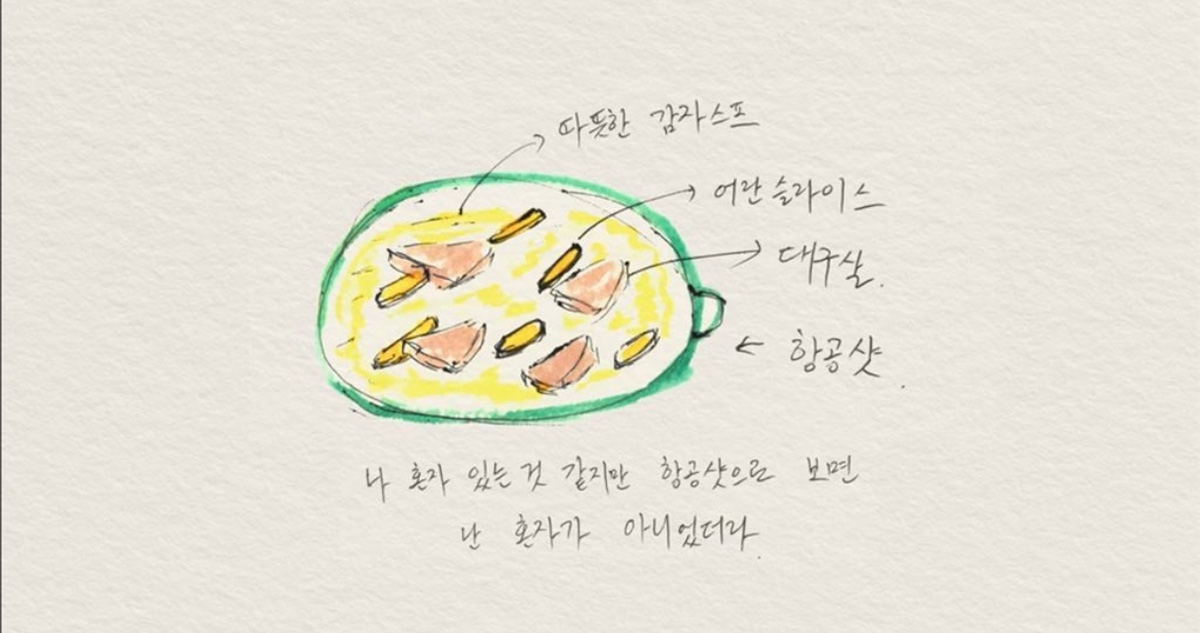 따뜻한 감자스프
어란 슬라이스
대구살.
← 항공샷.
나 혼자 있는 것 같지만 항공샷으로 보면
난 혼자가 아니었더라.